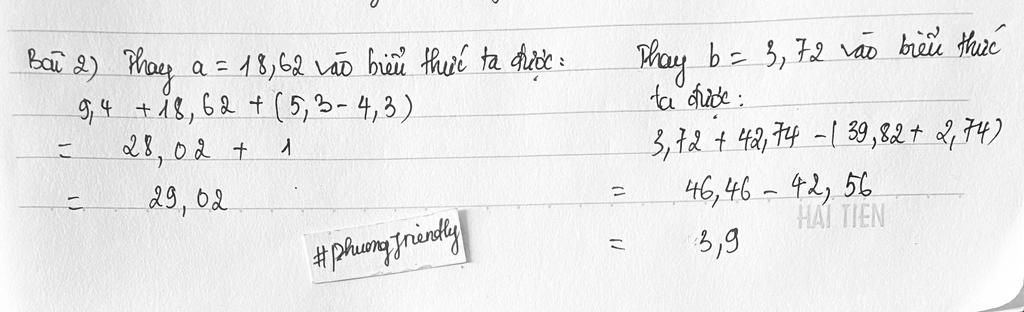 Bài 2) Thay a = 18,62 vào biểu thức ta được:
9,4 + 18,62 + (5,3 - 4,3)
= 28,02 + 1
= 29,02
#phuongfriendly
Thay b = 3,72 vào biểu thức
ta được:
3,72 + 42,74 - (39,82 + 2,74)
= 46,46 - 42,56
HẢI TIẾN
= 3,9